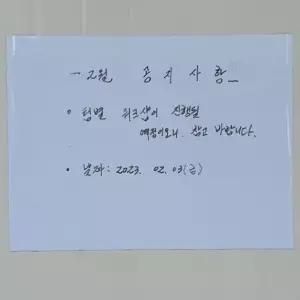 - 2월 공지사항 -
• 팀별 워크샵이 진행될
예정이오니. 참고 바랍니다.
• 날짜: 2023. 02. 03(금)